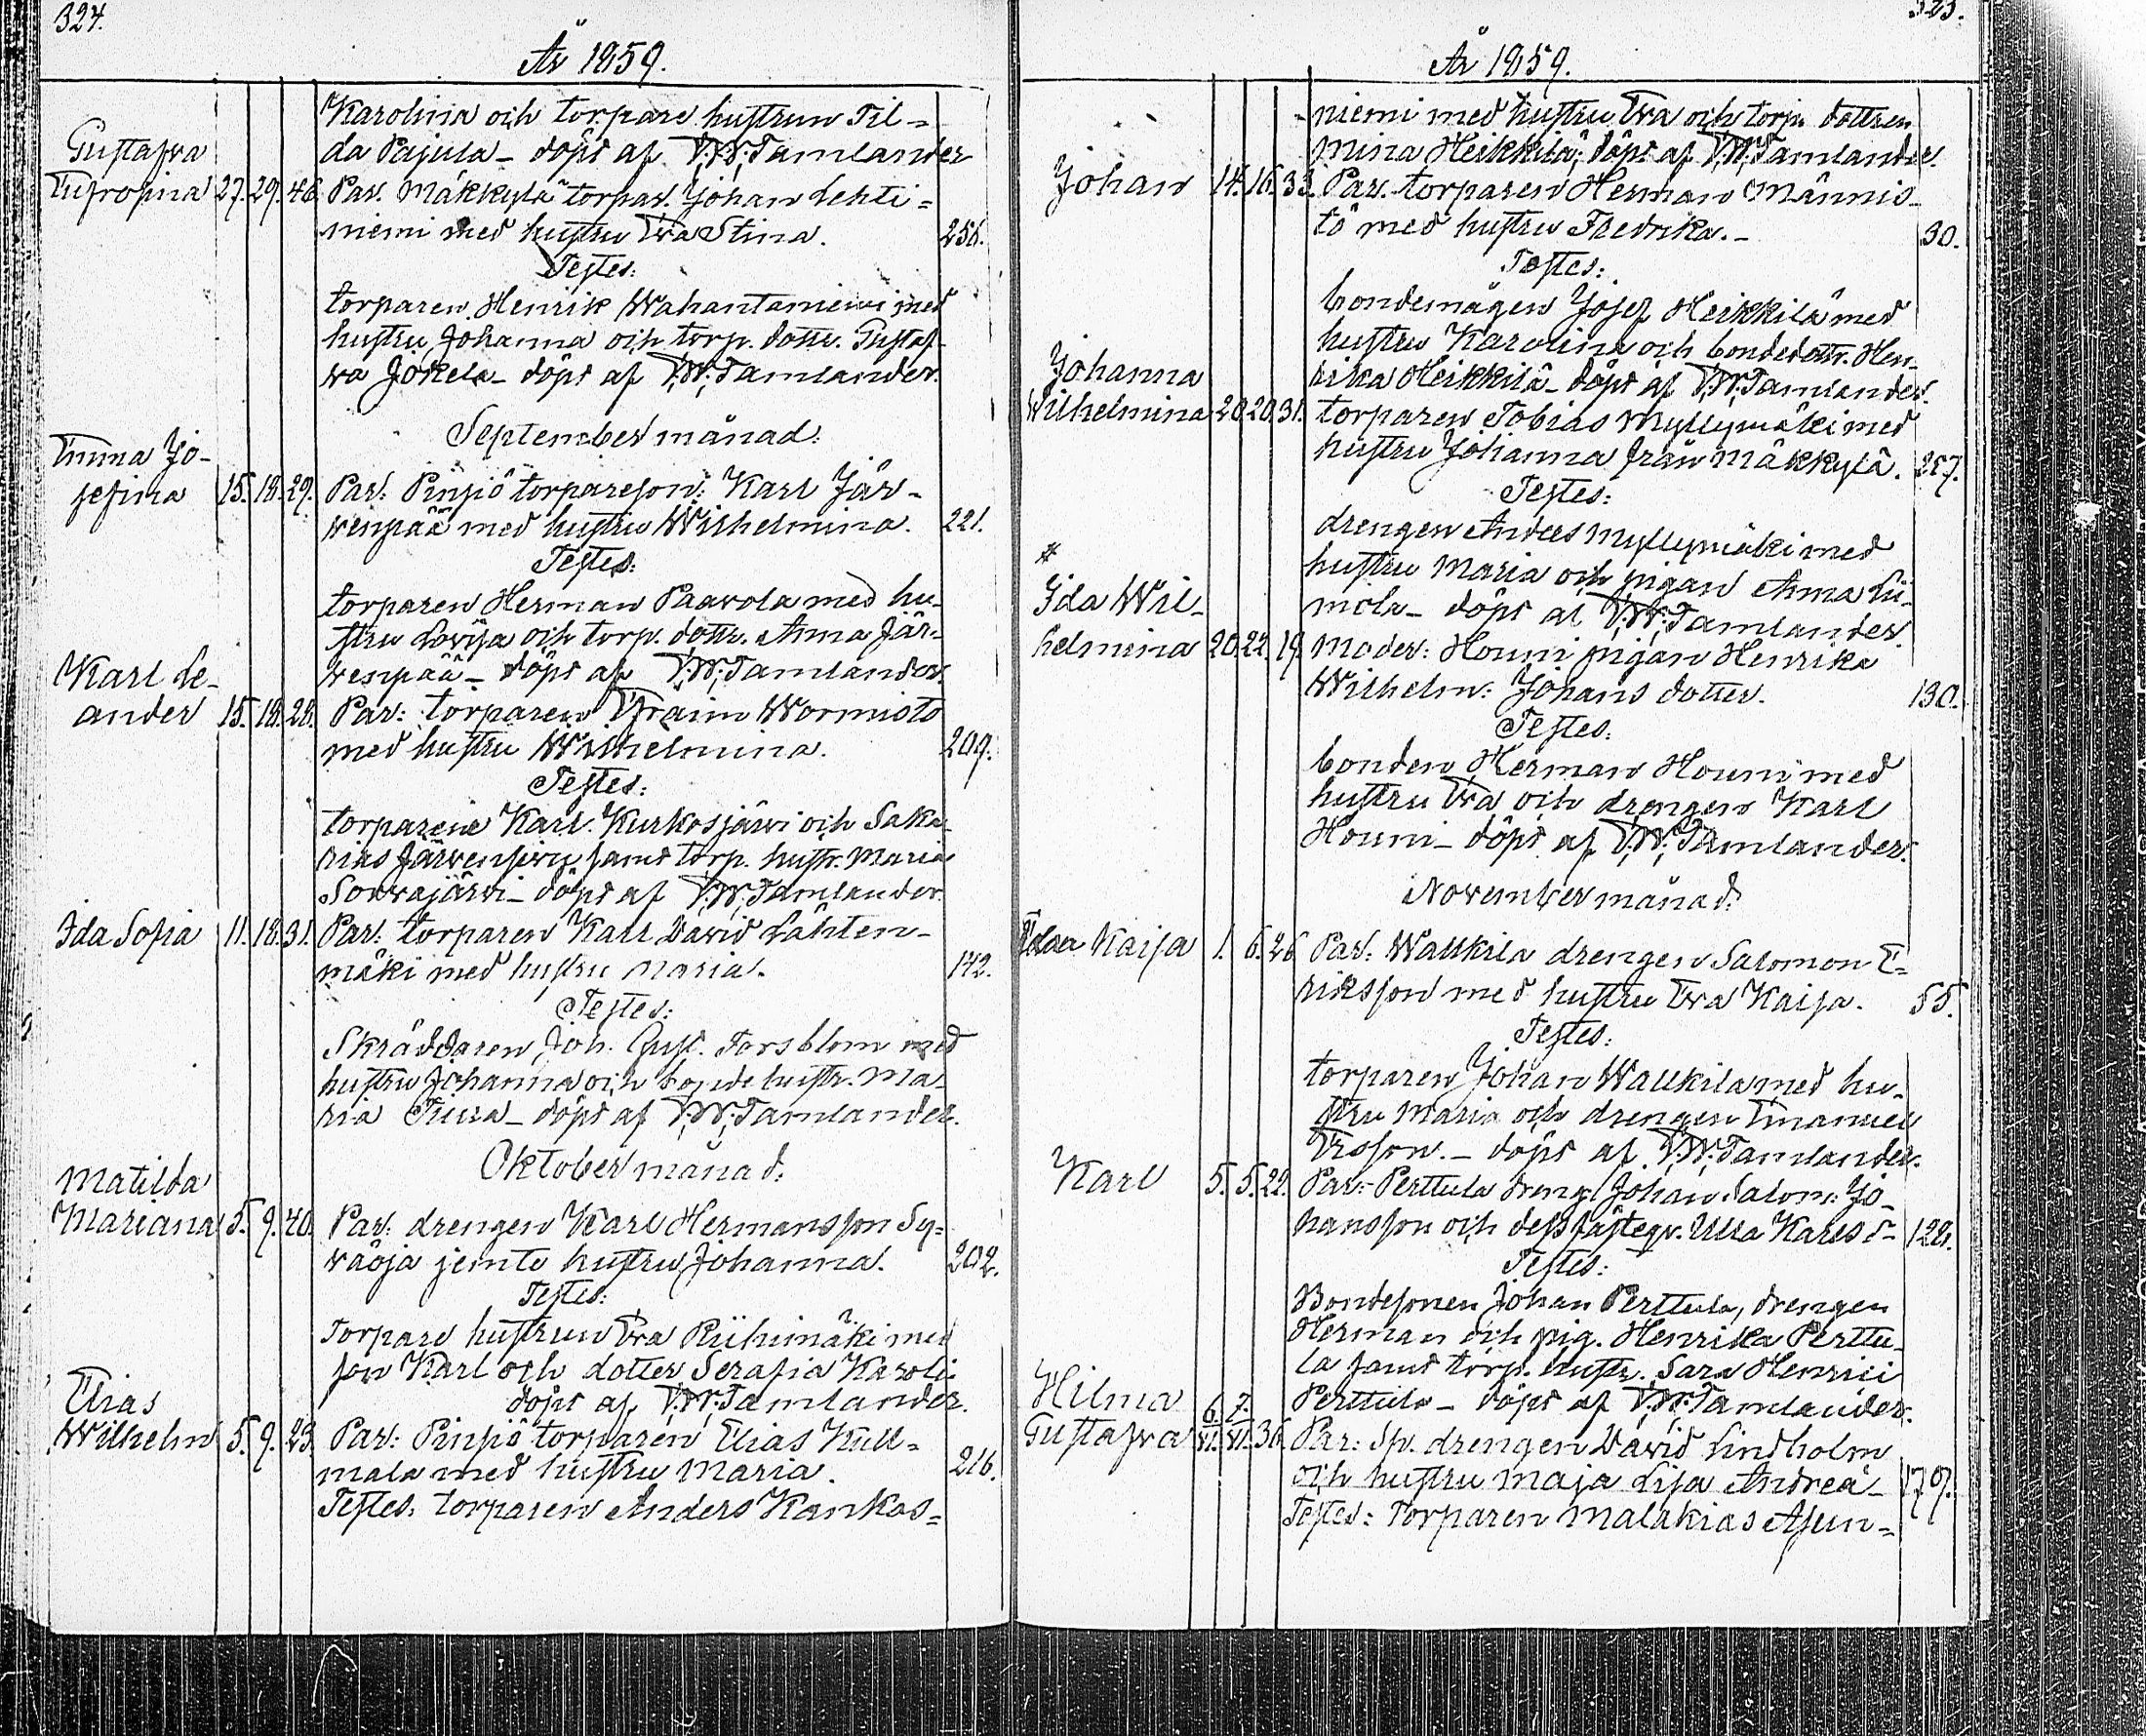 324.
År 1859.
Karolina och torpare hustrun Til=
da Pajula – döpt af V.W. Tamlander
Gustafva
Eufrosina 27. 29. 46. Par. Mäkkylä torpar. Johan Lehti=
niemi med hustru Eva Stina. 256.
Testes:
torparen Henrik Wahantaniemi med
hustru Johanna och torp. dottr. Gustaf-
va Jokela – döpt af V.W. Tamlander.
September månad:
Emma Jo-
sefina 15. 18. 29. Par: Pinsiö torpareson: Karl Jär-
venpää med hustru Wilhelmina. 221.
Testes:
torparen Herman Paavola med hu-
stru Lovisa och torp. dottr. Anna Jär-
venpää – döpt af V.W. Tamlander.
Karl Le-
ander 15. 18. 28. Par: torparen Efraim Wormisto
med hustru Wilhelmina. 209.
Testes:
torparene Karl Kurkosjärvi och Saka-
rias samt torp. hustr. Maria
Sorvajärvi – döpt af V.W. Tamlander.
Ida Sofia 11. 18. 31. Par: torparen Karl David Lähten-
mäki med hustru Maria. 142.
Testes:
Skräddaren Joh. Gust. Forsblom med
hustru Johanna och bonde hustr. Ma-
ria – döpt af V.W. Tamlander.
Oktober månad:
Matilda
Mariana 5. 9. 40. Par: drengen Karl Hermansson Sy=
väoja jemte hustru Johanna. 202.
Testes:
Torpare hustrun Eva Riihimäki med
son Karl och dotter Serafia Karoli:
döpt af V.W. Tamlander.
Elias
Wilhelm 5. 9. 23. Par: Pinsiö torparen Elias Kull=
mala med hustru Maria. 216.
Testes: torparen Anders Kankas=
325.
År 1859.
niemi med hustru Eva och torp. dottren
Mina Heikkilä; döpt af V.W. Tamlander.
Johan 14. 16. 33. Par. torparen Herman Männis-
tö med hustru Fredrika. – 30.
Testes:
bondemågen Josef Heikkilä med
hustru Karolina och bondedottr. Hen-
rika Heikkilä – döpt af V.W. Tamlander.
Johanna
Wilhelmina 20. 20. 31. torparen Tobias Myllymäki med
hustru Johanna från Mäkkylä. 257.
Testes:
drengen Anders Myllymäki med
hustru Maria och pigan Anna Lii-
mola – döpt af V.W. Tamlander.
Ida Wil-
helmina 20. 22. 19. Moder: Houni pigan Henrika
Wilhelm: Johans dotter. 130.
Testes:
bonden Herman Houni med
hustru Eva och drengen Karl
Houni – döpt af V.W. Tamlander.
November månad:
Kaisa 1. 6. 26. Par: Wallkila drengen Salomon E=
riksson med hustru Eva Kaisa. 55.
Testes:
torparen Johan Wallkila med hu-
stru Maria och drengen Emanuel
Ersson. – döpt af V.W. Tamlander.
Karl 5. 5. 22. Par: Perttula dreng. Johan Salom: Jo-
hansson och dess fästeqv. Ulla Karls d– 128.
Testes:
Bondesonen Johan Perttula, drengen
Herman och pig. Henrika Perttu-
la samt torp. hustr. Sara Henrici
Perttula – döpt af V.W. Tamlander.
Hilma
Gustafva 6/XI. 7/XI. 36. Par: Sp. drengen David Lindholm
och hustru Maja Lisa Andreä – 179.
Testes: Torparen Malakias Asun=